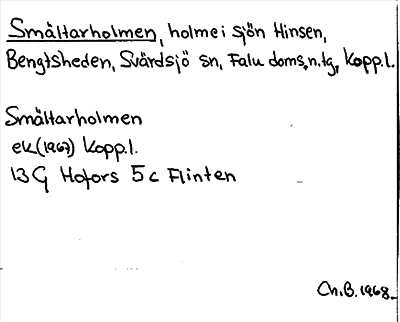 Smältarholmen, holme i sjön Hinsen,
Bengtsheden, Svärdsjö sn, Falu doms.n.tg, Kopp.l.
Smältarholmen
ek (1967) Kopp.l.
13 G Hofors 5c Flinten
Ch.B. 1968.